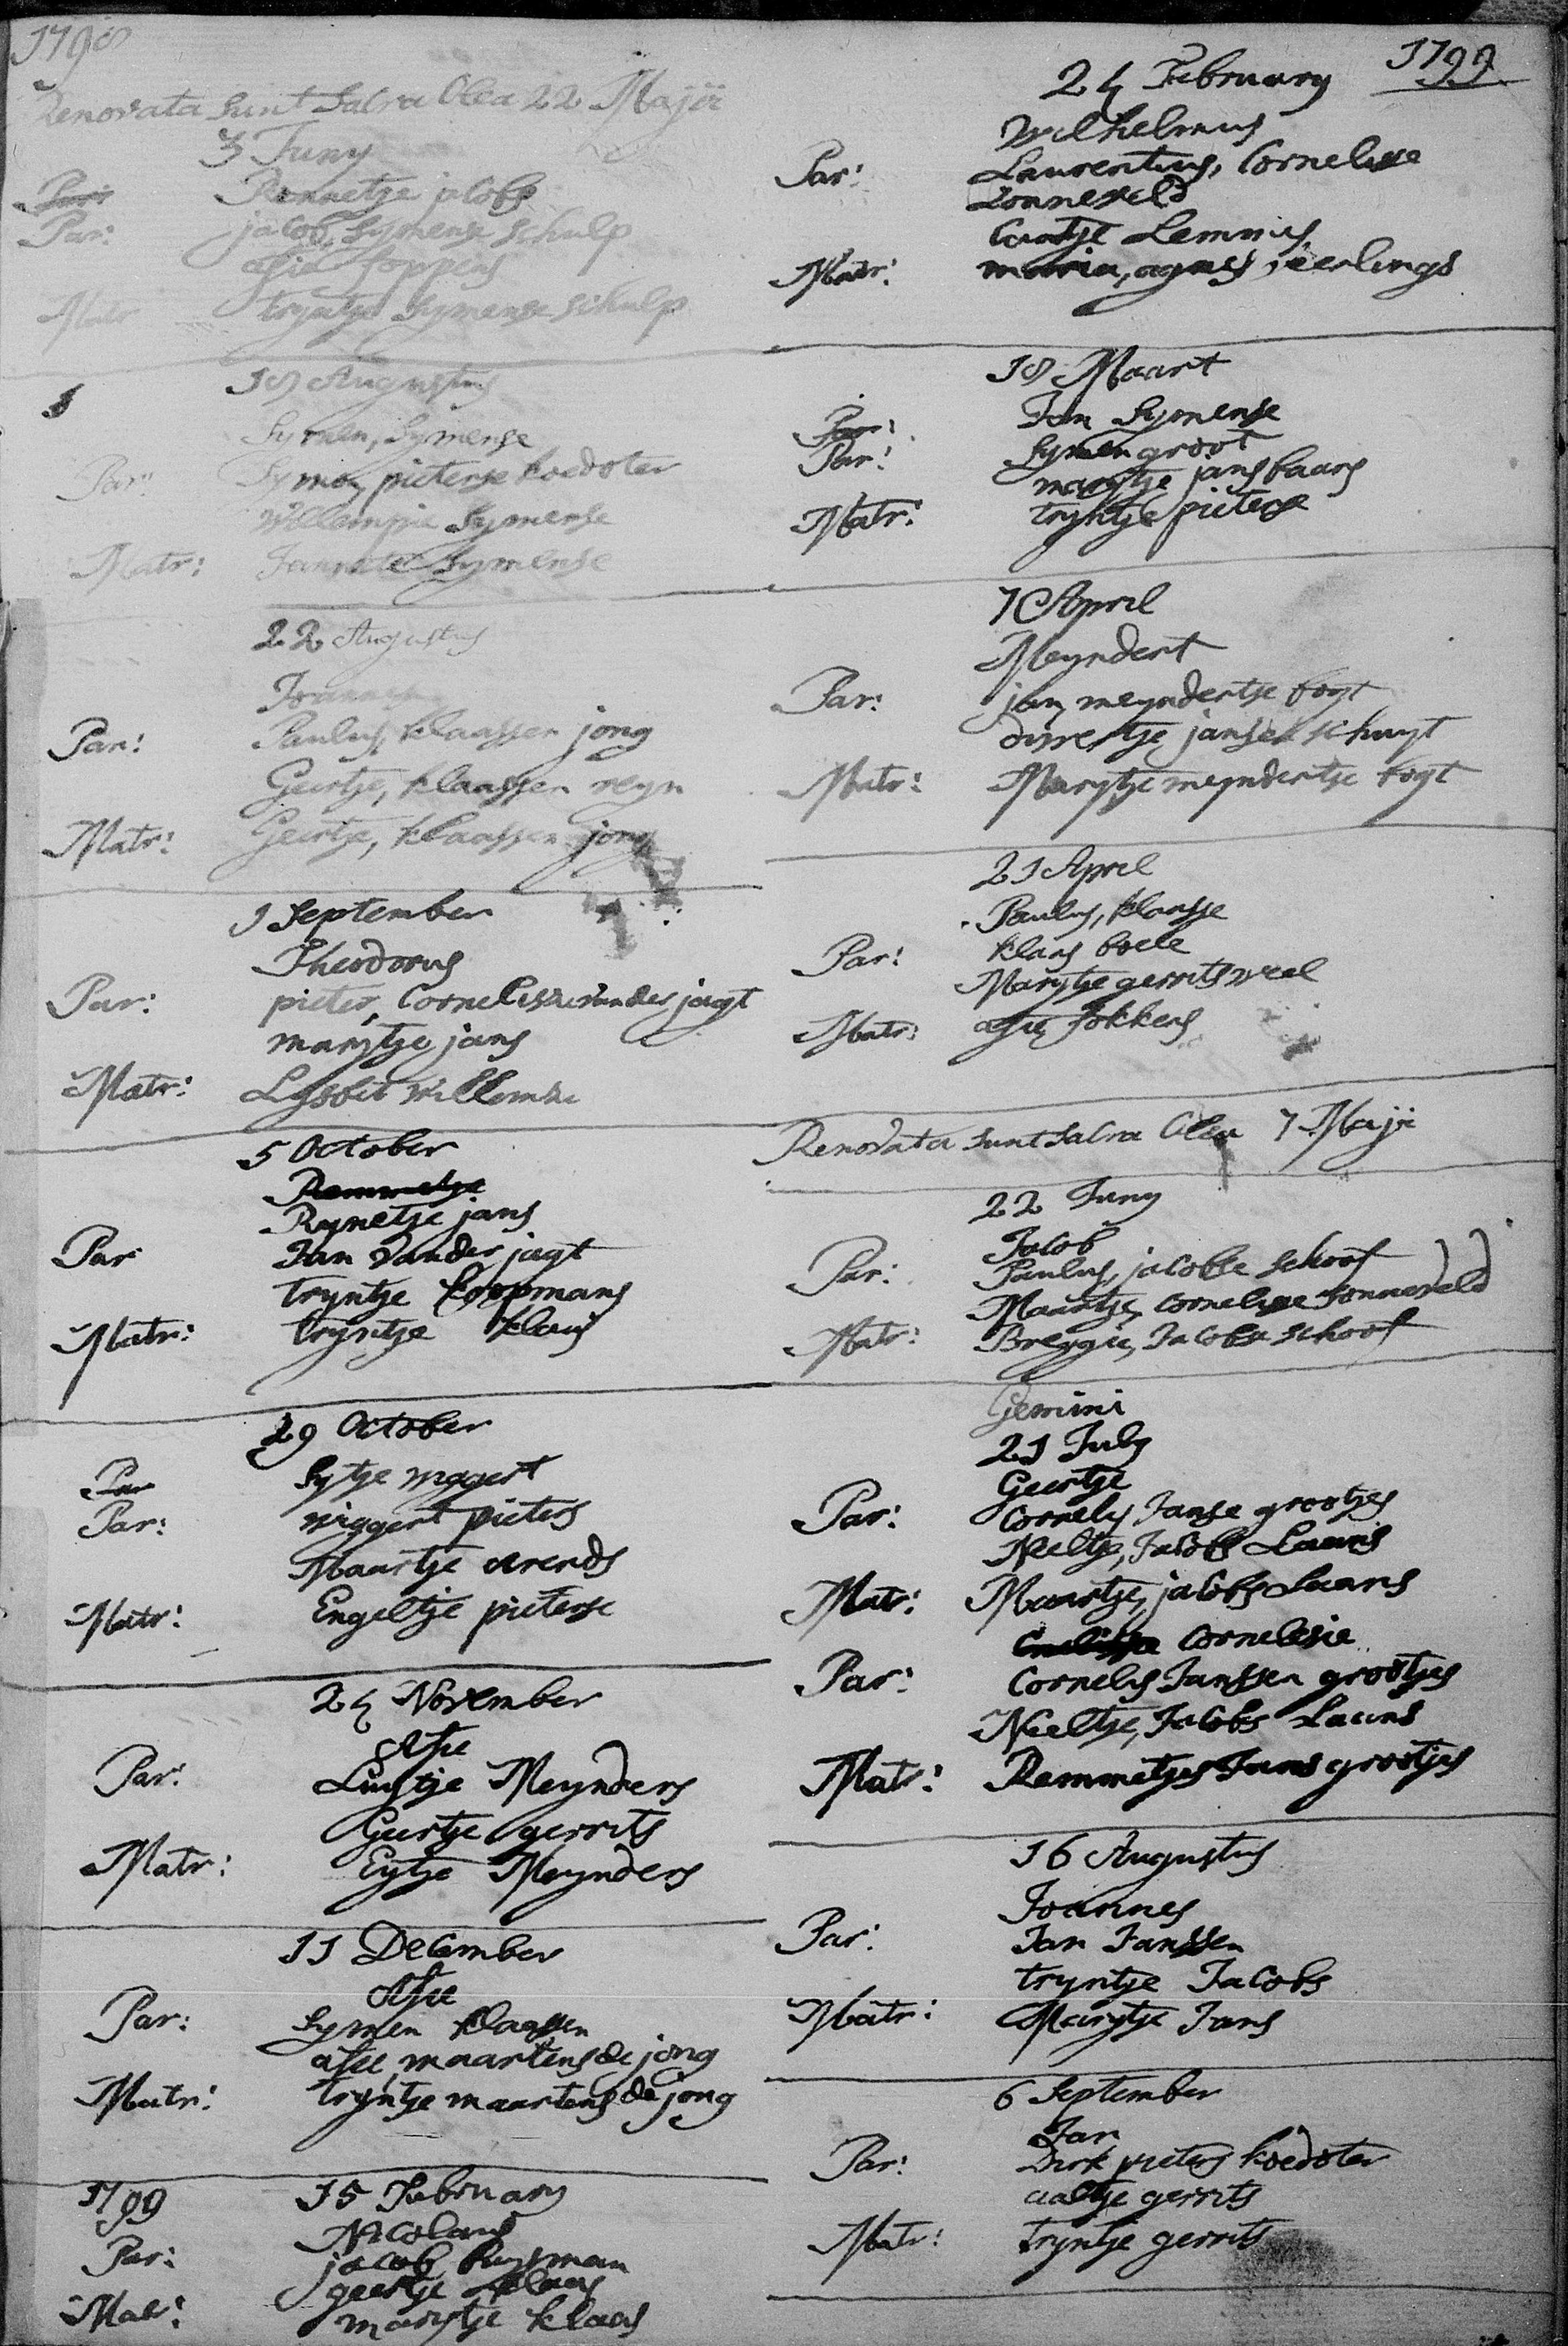 1798
Renovata sunt Sacra Olea 22 Maji
3 Juny
Par:
Remmetje jacobs
Par: jacob, Symense Schulp
afie Foppens
Matr tryntje Symense Schulp
18 Augustus
Symen, Symense
Par: Symon, pieterse koedoter
Willempie Symense
Matr: Jannetie Symense
22 Augustus
Joannes
Par: Paulus, klaassen jong
Geertje, klaassen reyn
Matr: Geertje, klaassen jong
1 September
Theodorus
Par: pieter, Cornelisse vander jagt
marytje jans
Matr: Lysbet Willemse
5 October
Remmetje
Rynetje jans
Par Jan vander jagt
tryntje koopmans
Matr: tryntje klaas
29 October
Par Sytje wiggert
Par: wiggert pieters
Maartje arends
Matr: Engeltje pieterse
24 November
Afie
Par: Luytje Meynders
Geertje gerrits
Matr: Eytje Meynders
11 December
Afie
Par: Symen klaassen
afie, maartens de jong
Matr: tryntje maartens de jong
1799 15 February
Nicolaus
Par: jacob Huysman
geertje klaas
Mat: marytje klaas
1799
24 February
Wilhelmus
Par: Laurentius, Cornelisse
Zonneveld
Caatje Lemmes
Matr: maria, agnes, veerlings
18 Maart
Par: Jan Symense
Par: Symen groot
marytje jans baars
Matr: tryntje pieterse
7 April
Meyndert
Par: jan, meyndertse bogt
divertje jansen schuyt
Matr: Marytje meyndertse bogt
21 April
Paulus, klaasse
Par: klaas boele
Marytje gerrits weel
Matr: afie, fokkens
Renovata sunt Sacra Olea 7 Maji
22 Juny
Jacob
Par: Paulus, jacobse schoof
Maartje, Cornelisse Sonneveld
Matr: Breggie, Jacobse schoof
Gemini
21 July
Geertje
Par: Cornelis Janse grootjes
Neeltje, Jacobs Laans
Matr: Maartje, jacobs Laans
Cornelisie
Par: Cornelis Janssen grootjes
Neeltje, Jacobs Laans
Matr: Remmetjes Jans grootjes
16 Augustus
Joannes
Par: Jan Janssen
tryntje Jacobs
Matr: Marytje Jans
6 September
Jan
Par: Dirk pieters koedoter
aaltje gerrits
Matr: tryntje gerrits